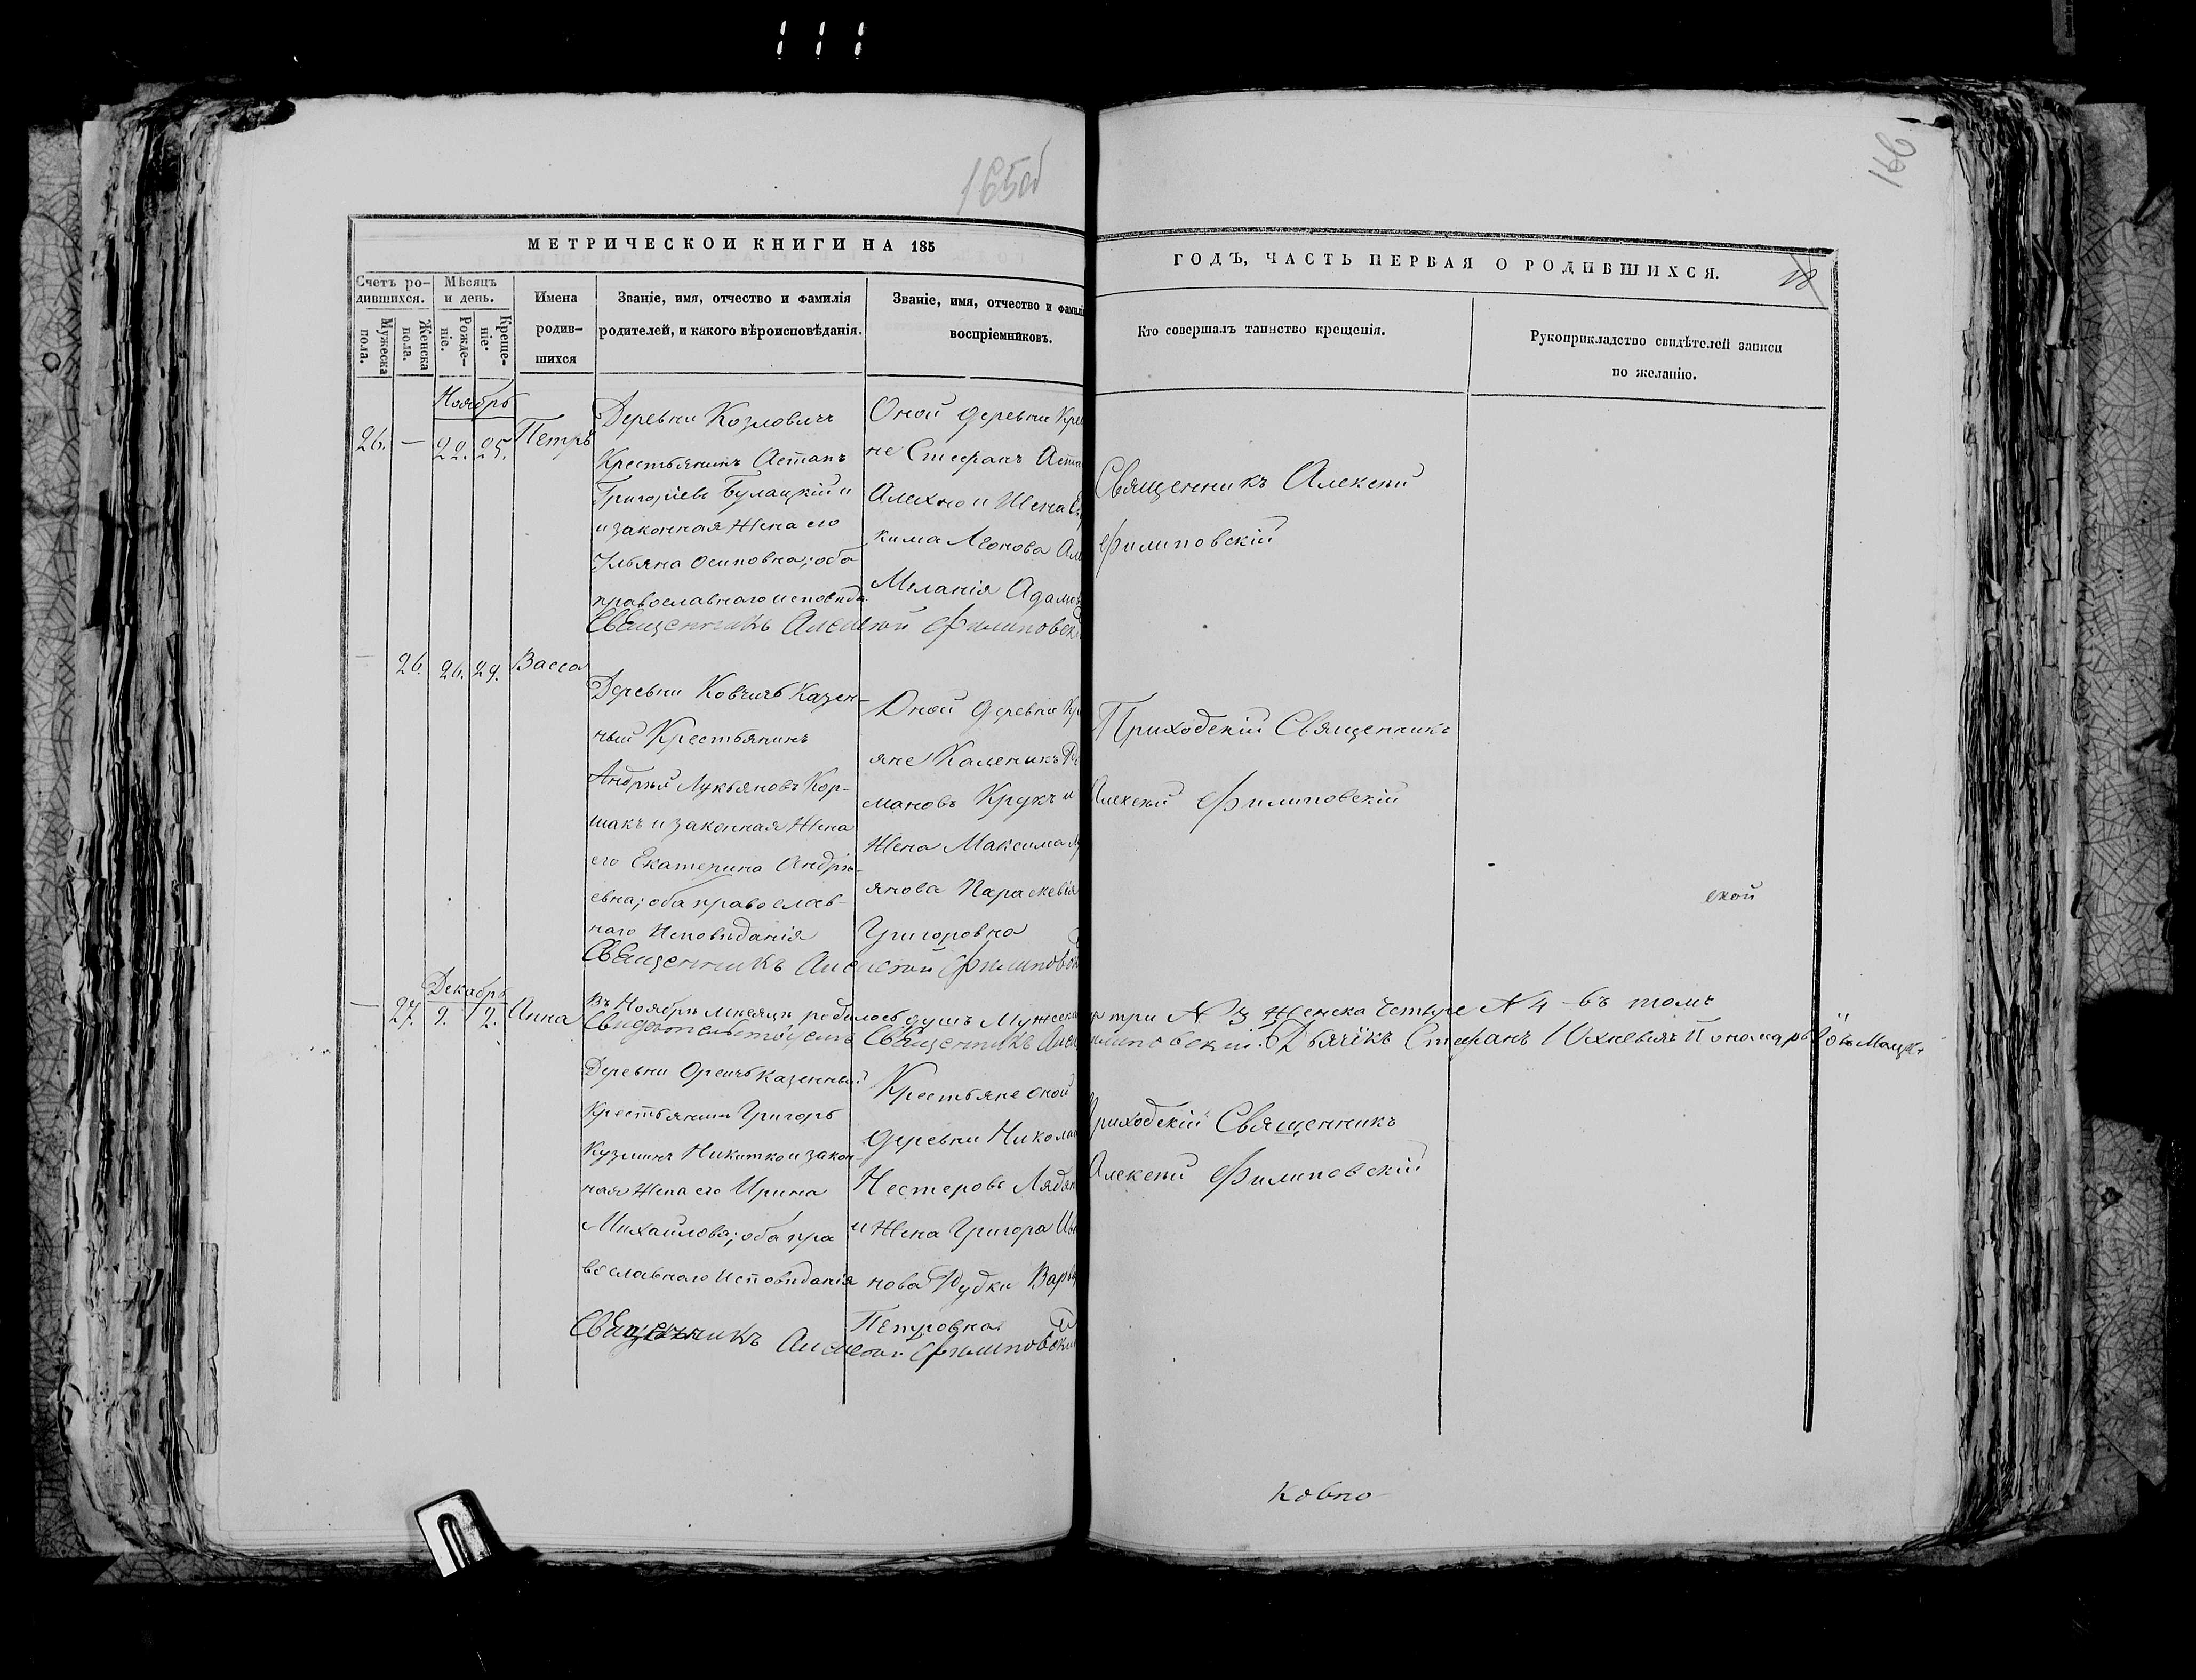 165об
166
МЕТРИЧЕСКОЙ КНИГИ НА 185
ГОДЪ, ЧАСТЬ ПЕРВАЯ О РОДИВШИХСЯ.
18
Счетъ ро-
дившихся.
Мѣсяцъ
и день.
Мужеска
пола.
Женска
пола.
Рожде-
ніе.
Креще-
ніе.
Имена
родив-
шихся
Званіе, имя, отчество и фамилія
родителей, и какого вѣроисповѣданія.
Званіе, имя, отчество и фамилі
воспріемниковъ.
Кто совершалъ таинство крещенія.
Рукоприкладство свидѣтелей записи
по желанію.
Ноябрь
26. — 22. 25. Петръ
Деревни Козловичъ
Крестьянинъ Астапъ
Григоріевъ Булацкій и
и законная Жена его
Ульяна Осиповна; оба
православнаго исповѣда.
Оной деревни Кре
не Стефанъ Аста
Алехно и Жена
кима Леонова Але
Меланія Адамов
Священникъ Алексѣй
Филиповскій
Священникъ Алексѣй Филиповск
— 26. 26. 29. Васса
Деревни Ковчичъ Казен-
ный Крестьянинъ
Андрей Лукьяновъ Кор-
шакъ и законная Жена
его Екатерина Андрѣ-
евна; оба православ-
наго Исповѣданія
Оной деревни Кр
яне Каленикъ Ро
мановъ Крукъ и
Жена Максима
янова Параскевія
Григоровна
Приходскій Священникъ
Алексѣй Филиповскій
ской
Священникъ Алексѣй Филиповск
Декабрь
— 27. 9. 12. Анна
Въ Ноябрѣ мѣсяцѣ родилось душъ Мужеска три № 3 Женска четыре № 4 въ томъ
Свидѣтельствуемъ Священникъ Алек илиповский. Дьячкъ Стефанъ Юхневичъ Пономарь
Деревни Оречъ казенный
Крестьянинъ Григоръ
Кузминъ Никитко и закон-
ная Жена его Ирина
Михайлова; оба пра
вославнаго Исповѣданія
Крестьяне оной
деревни Никола
Нестеровъ Лядян
и Жена Григора Ив
нова Рудки Варв
Петровна
Приходскій Священникъ
Алексѣй Филиповскій
Священникъ Алексѣй Филиповски
Ковно